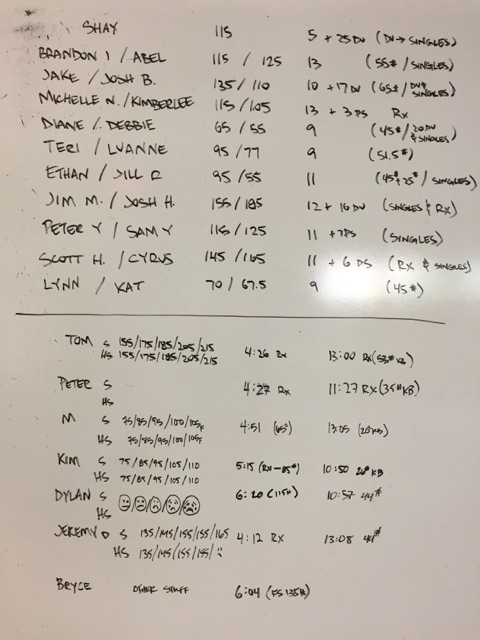 SHAY 115 5 + 25 DU (DU → SINGLES)
BRANDON I / ABEL 115 / 125 13 (55# / SINGLES)
JAKE / JOSH B. 135 / 110 10 + 17 DU (65# / DU & SINGLES)
MICHELLE N. / KIMBERLEE 115 / 105 13 + 3 PS RX
DIANE / DEBBIE 65 / 55 9 (45# / 20 DU & SINGLES)
TERI / LUANNE 95 / 77 9 (51.5#)
ETHAN / JILL R 95 / 55 11 (45# + 25# / SINGLES)
JIM M. / JOSH H. 155 / 185 12 + 10 DU (SINGLES & RX)
PETER Y / SAM Y 115 / 125 11 + 7 PS (SINGLES)
SCOTT H. / CYRUS 145 / 165 11 + 6 PS (RX & SINGLES)
LYNN / KAT 70 / 67.5 9 (45#)
TOM S 155/175/185/205/215 4:26 RX 13:00 RX (53# KB)
HS 155/175/185/205/215
PETER S 4:27 RX 11:27 RX (35# KB)
HS
M S 75/85/95/100/105F 4:51 (65#) 13:05 (26# KB)
HS 75/85/95/100/105F
KIM S 75/85/95/105/110 5:15 (RX - 85#) 10:50 26# KB
HS 75/85/95/105/110
DYLAN S 6:20 (115#) 10:57 44#
HS
JEREMY D S 135/145/155/155/165 4:12 RX 13:08 44#
HS 135/145/155/155/
BRYCE OTHER STUFF 6:04 (FS 135#)